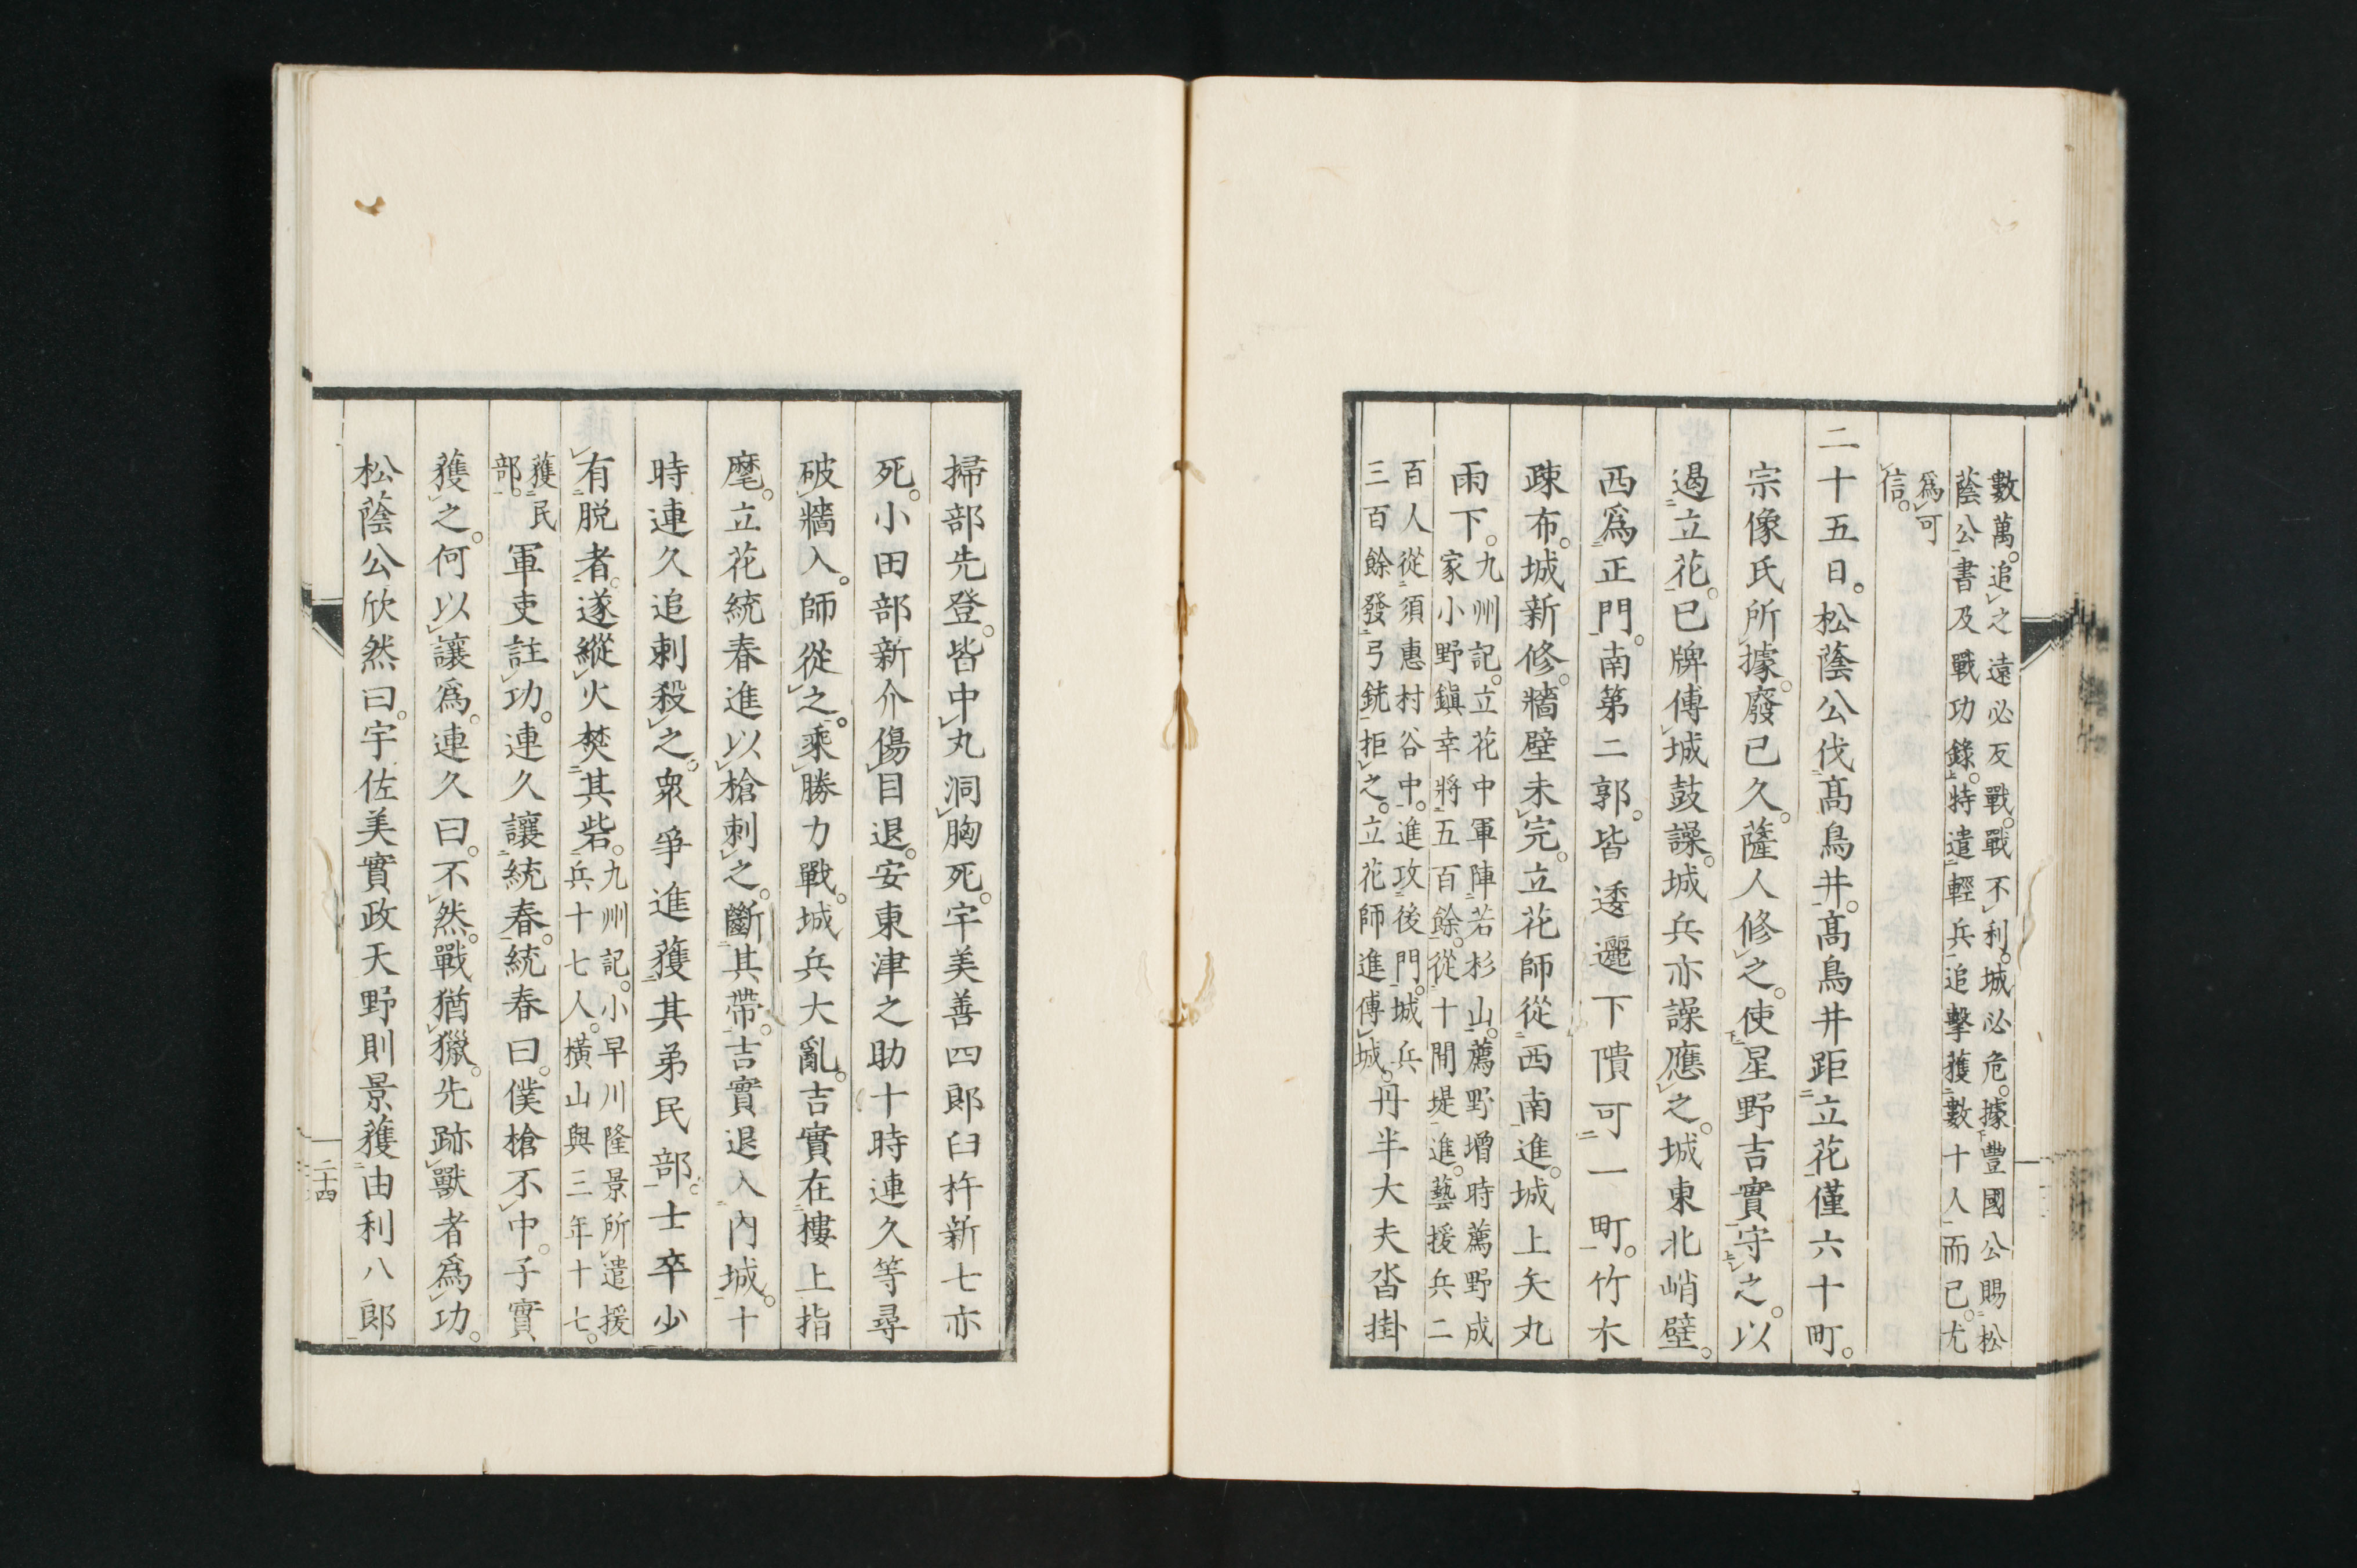 數萬。追之遠必反戰。戰不利。城必危。據豐國公賜松
蔭公書及戰功錄。特遣輕兵追擊獲數十人而已。尤
爲可
信。
二十五日。松蔭公伐高鳥井。高鳥井距立花僅六十町。
宗像氏所據。廢已久。薩人修之。使星野吉實守之。以
遏立花。已牌傅城鼓譟。城兵亦譟應之。城東北峭壁。
西爲正門。南第二郭。皆逶邐下隤可一町。竹木
疎布。城新修。牆壁未完。立花師從西南進。城上矢丸
雨下。
九州記。立花中軍陣若杉山。薦野增時薦野成
家小野鎭幸將五百餘。從十間堤進。藝援兵二
百人從須惠村谷中。進攻後門。城兵
三百餘發弓銃拒之。立花師進傅城。
丹半大夫沓掛
掃部先登。皆中丸洞胸死。宇美善四郎臼杵新七亦
死。小田部新介傷目退。安東津之助十時連久等尋
破牆入。師從之。乘勝力戰。城兵大亂。吉實在樓上指
麾。立花統春進以槍刺之。斷其帶。吉實退入內城。十
時連久追刺殺之。衆爭進獲其弟民部。士卒少
有脱者。遂縱火焚其砦。
九州記。小早川隆景所遣援
兵十七人。橫山與三年十七。
獲民
部。
軍吏註功。連久讓統春。統春曰。僕槍不中。子實
獲之。何以讓爲。連久曰。不然。戰猶獵。先跡獸者爲功。
松蔭公欣然曰。宇佐美實政天野則景獲由利八郎
二十四